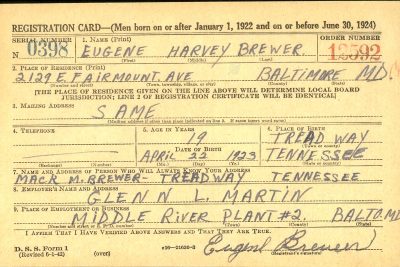 REGISTRATION CARD—(Men born on or after January 1, 1922 and on or before June 30, 1924)
SERIAL NUMBER 1. NAME (Print) ORDER NUMBER
N 0398 EUGENE HARVEY BREWER 13592
2. PLACE OF RESIDENCE (Print)
2129 E. FAIRMOUNT AVE BALTIMORE MD.
(Number and street) (Town, township, village, or city) (County) (State)
[THE PLACE OF RESIDENCE GIVEN ON THE LINE ABOVE WILL DETERMINE LOCAL BOARD
JURISDICTION; LINE 2 OF REGISTRATION CERTIFICATE WILL BE IDENTICAL]
3. MAILING ADDRESS
SAME
[Mailing address if other than place indicated on line 2. If same insert word same]
4. TELEPHONE 5. AGE IN YEARS 6. PLACE OF BIRTH
19 TREADWAY
DATE OF BIRTH (Town or county)
APRIL 22 1923 TENNESSEE
(Exchange) (Number) (Mo.) (Day) (Yr.) (State or country)
7. NAME AND ADDRESS OF PERSON WHO WILL ALWAYS KNOW YOUR ADDRESS
MACK M. BREWER TREADWAY TENNESSEE
8. EMPLOYER'S NAME AND ADDRESS
GLENN L. MARTIN
9. PLACE OF EMPLOYMENT OR BUSINESS
MIDDLE RIVER PLANT #2. BALTO. MD
(Number and street or R. F. D. number) (Town) (County) (State)
I AFFIRM THAT I HAVE VERIFIED ABOVE ANSWERS AND THAT THEY ARE TRUE.
D. S. S. Form 1
(Revised 6-1-42) (over) Eugene Brewer